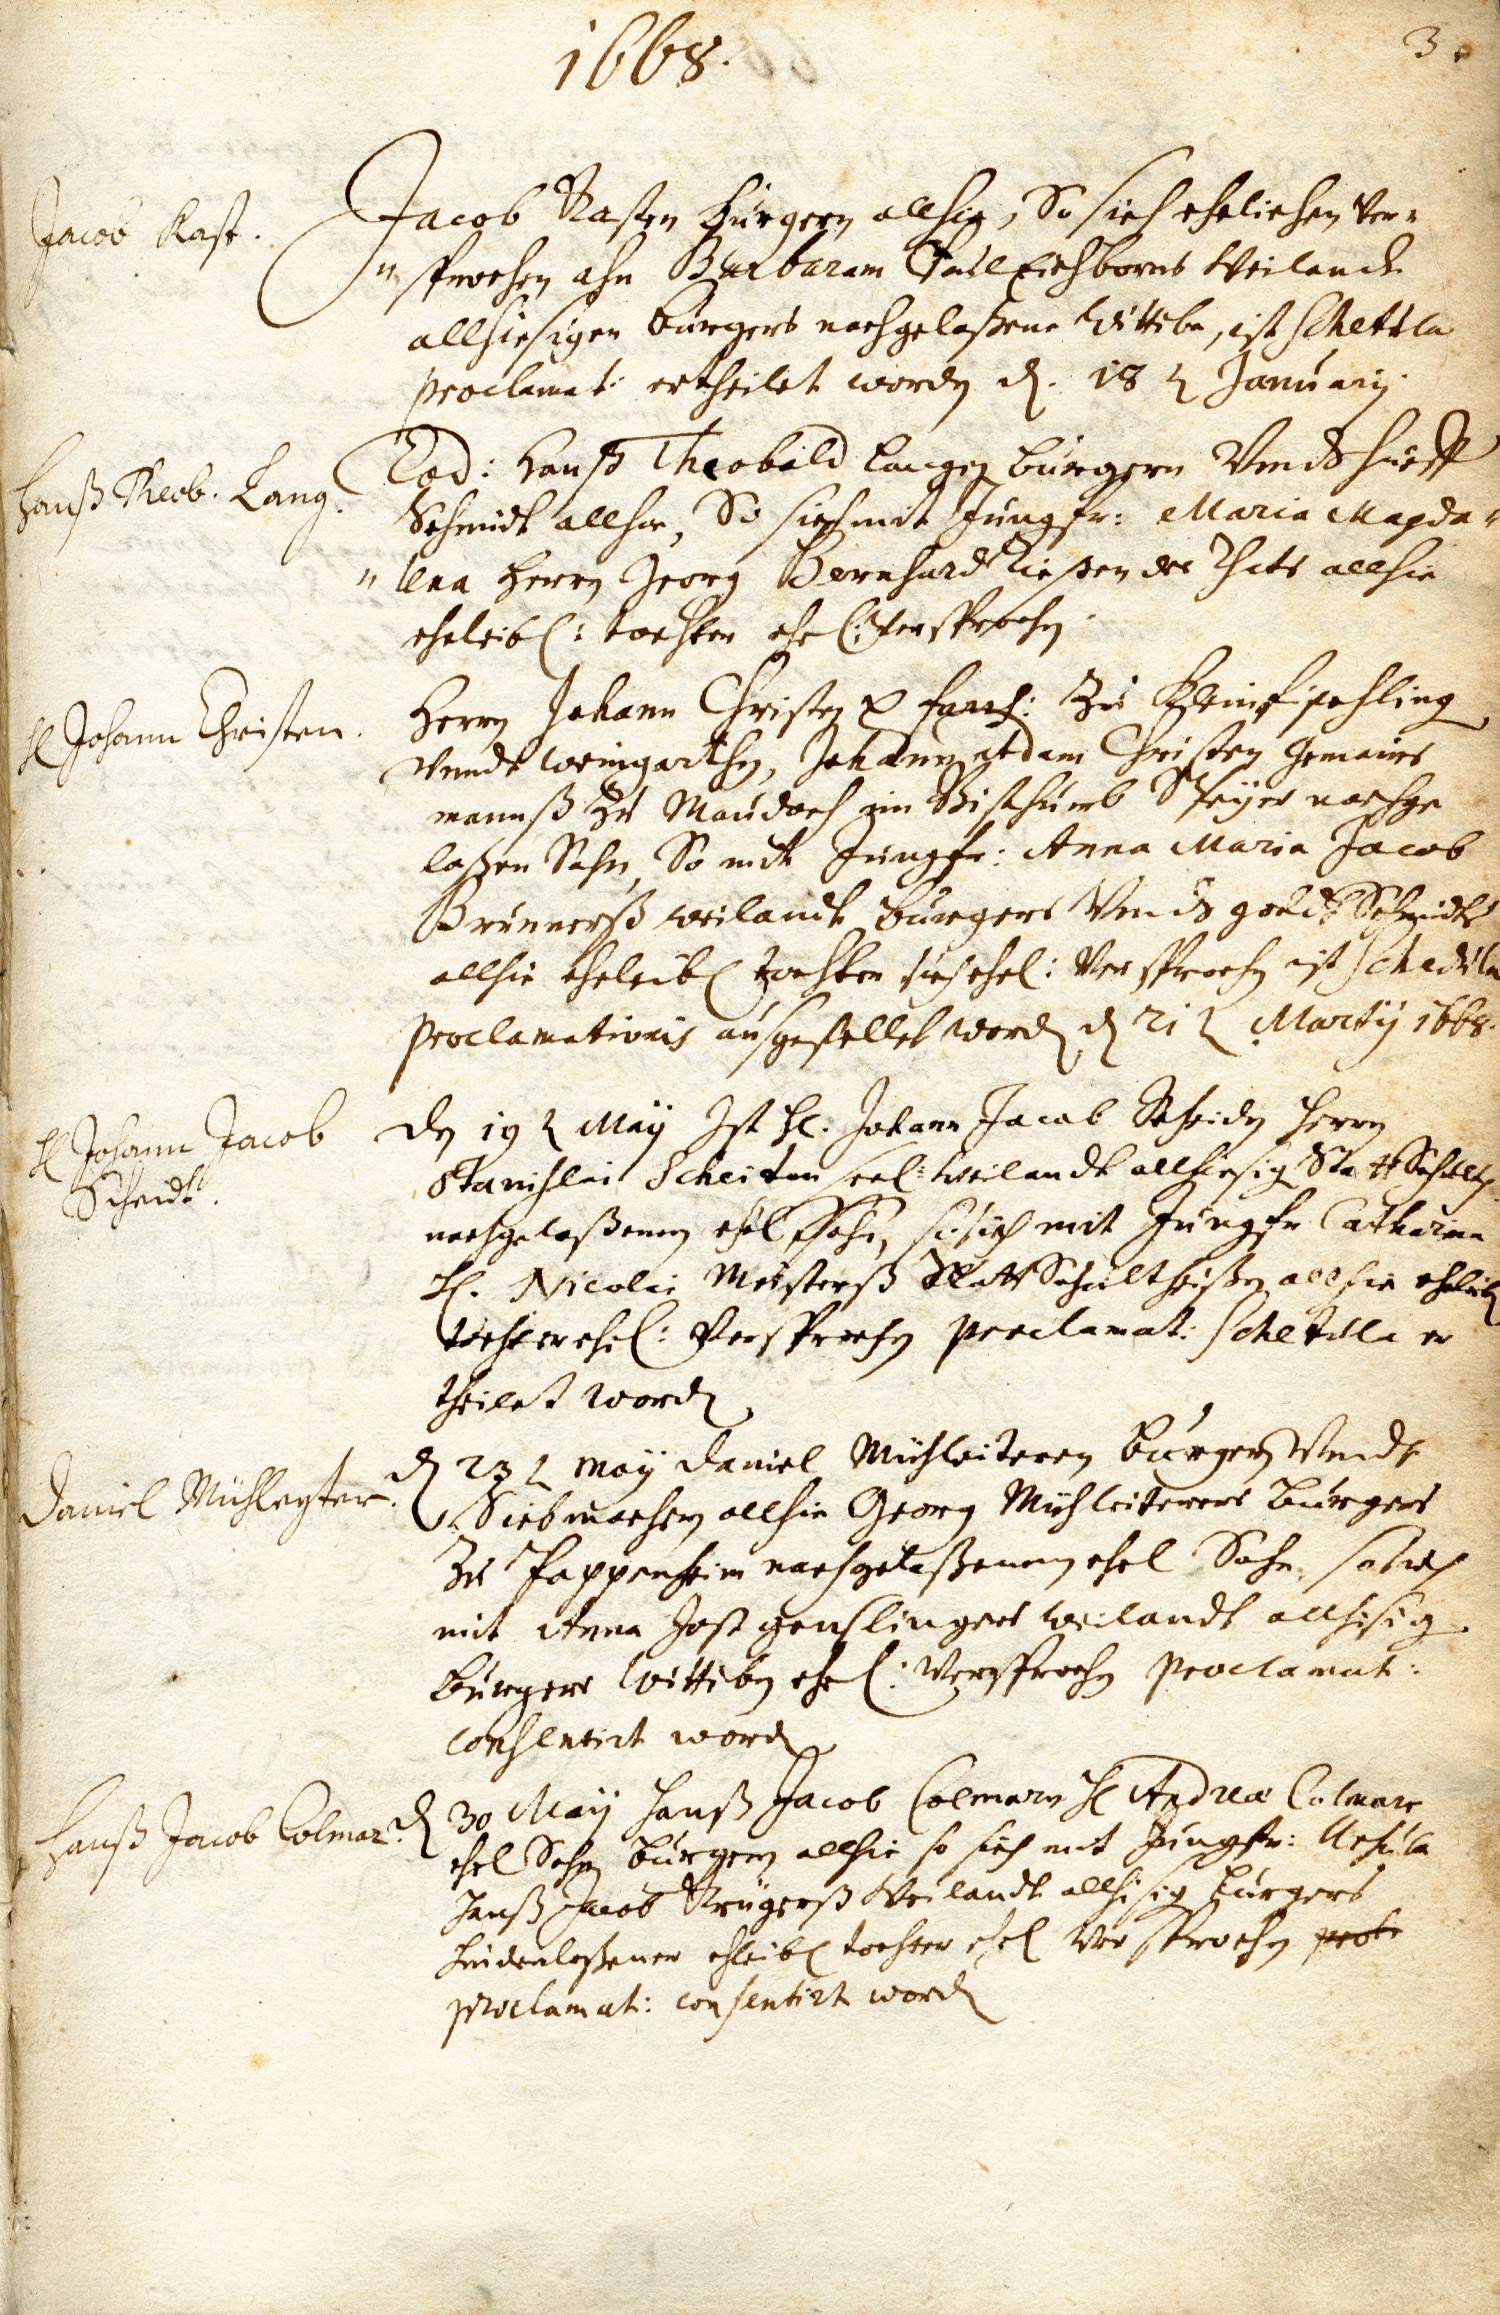 1668.
3.
Jacob Kast.
Jacob Kasten Burgern allhie, So sich ehelichen ver-
"sprochen ahn Barbaram Paul Eichborns Weilandt
allhiesigen burgers nachgelaßene Wittibn, ist schetula
proclamat: ertheilet worden d. 18 t January.
Hanß Theob. Lang.
Eod: Hanß Theobald Langen burgern Undt Hueff
Schmidt allhie, So sich mit Jungfr: Maria Magda-
"lena Herrn Georg Bernhard des Rhats allhie
eheleibl: tochter ehel: Versprochen.
H Johann Christen.
Herrn Johann Christen p Zu
undt Weingarthen, Johann Adam Christen Gemains
manß zu Maudach im Bisthumb Speyer nachge
laßen Sohn, So mit Jungfr: Anna Maria Jacob
Brunnerß weilandt burgers Undt goldt Schmidts
allhie eheleibl tochter sich ehel: Versprochen ist schedula
proclamationis außgestellet word d 21 t Martij 1668.
H Johann Jacob
Scheidt.
den 19 t May Ist H. Johann Jacob Scheiden Herrn
Stanislai Scheiten seel: weilandt allhiesig Statt Schulth.
nachgelaßenen ehel Sohn, so sich mit Jungfr Catharina
H. Nicolai Meisterß Statt Schultheißen allhie eheleibl
tochter ehel: Versprochen proclamat: schetula er
theilet word
Daniel Mühleyter.
d 23 t May Daniel Mühleiteren burgern Undt
Siebmachern allhie Georg Mühleiterers burgers
Zu Pappenheim nachgelaßenen ehel Sohn, so sich
mit Anna Jost genslingers weilandt allhisig
burgers Wittiben ehel: Versprochen proclamat:
consentirt word
Hanß Jacob Colmar.
d 30 May Hanß Jacob Colmarn H Andreæ Colmars
ehel Sohn burgern allhie so sich mit Jungfr: Ursula
Hanß Jacob Krügerß Weilandt allhisig burgers
hinderlaßener ehleibl tochter ehel Versprochen
proclamat: consentirt word